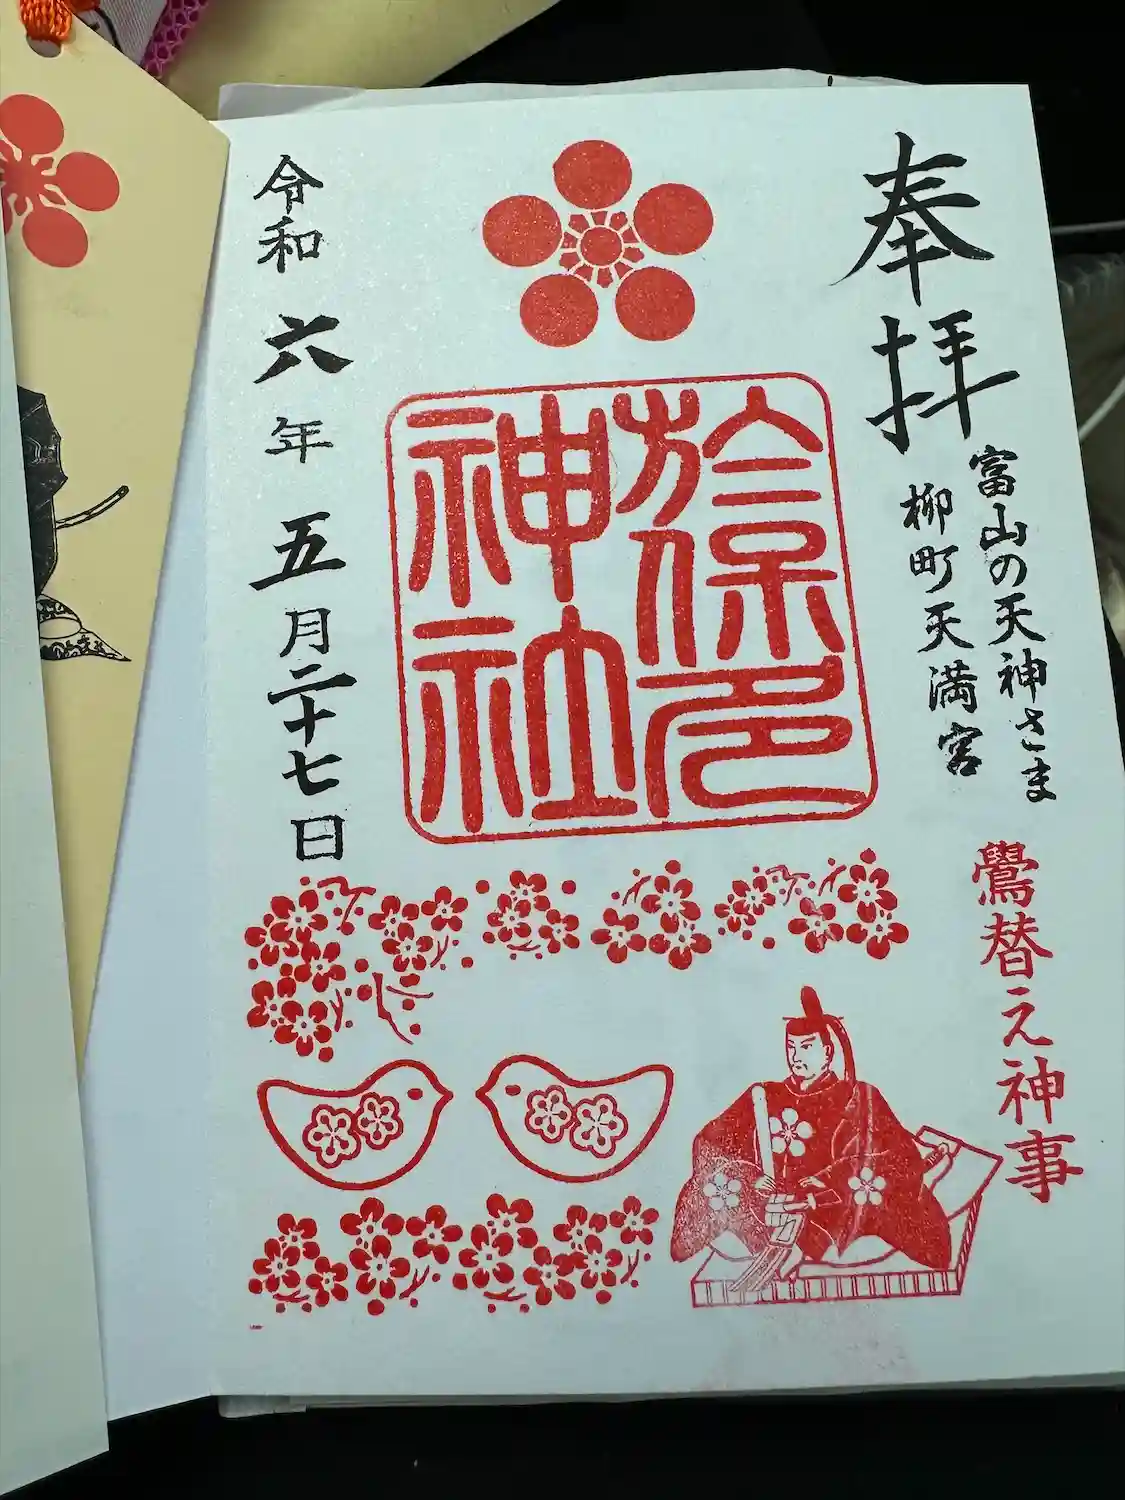 奉拝
富山の天神さま
柳町天満宮
鷽替え神事
於保多
神社
令和六年五月二十七日